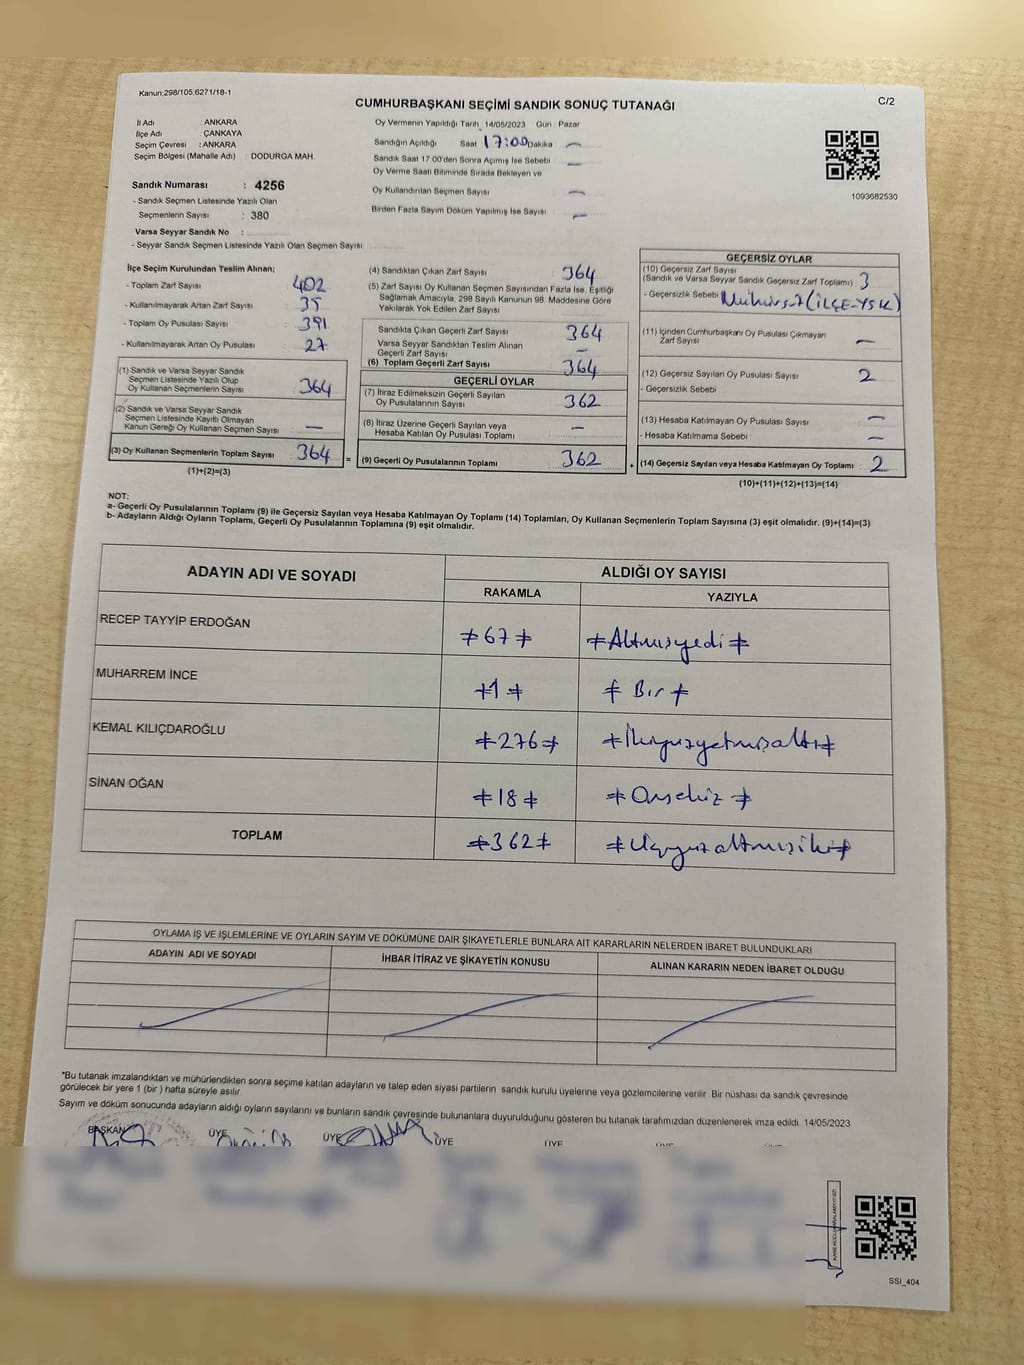 Kanun:298/105,6271/18-1
CUMHURBAŞKANI SEÇİMİ SANDIK SONUÇ TUTANAĞI
C/2
İl Adı : ANKARA
İlçe Adı : ÇANKAYA
Seçim Çevresi : ANKARA
Seçim Bölgesi (Mahalle Adı) : DODURGA MAH.
Sandık Numarası : 4256
- Sandık Seçmen Listesinde Yazılı Olan
Seçmenlerin Sayısı : 380
Varsa Seyyar Sandık No :
- Seyyar Sandık Seçmen Listesinde Yazılı Olan Seçmen Sayısı
Oy Vermenin Yapıldığı Tarih : 14/05/2023 Gün : Pazar
Sandığın Açıldığı Saat 17:00 Dakika —
Sandık Saat 17.00'den Sonra Açımış İse Sebebi —
Oy Verme Saati Bitiminde Sırada Bekleyen ve
Oy Kullandırılan Seçmen Sayısı —
Birden Fazla Sayım Döküm Yapılmış İse Sayısı —
1093682530
İlçe Seçim Kurulundan Teslim Alınan;
- Toplam Zarf Sayısı 402
- Kullanılmayarak Artan Zarf Sayısı 35
- Toplam Oy Pusulası Sayısı 391
- Kullanılmayarak Artan Oy Pusulası 27
(1) Sandık ve Varsa Seyyar Sandık
Seçmen Listesinde Yazılı Olup
Oy Kullanan Seçmenlerin Sayısı 364
(2) Sandık ve Varsa Seyyar Sandık
Seçmen Listesinde Kayıtlı Olmayan
Kanun Gereği Oy Kullanan Seçmen Sayısı —
(3) Oy Kullanan Seçmenlerin Toplam Sayısı 364 =
(1)+(2)=(3)
(4) Sandıktan Çıkan Zarf Sayısı 364
(5) Zarf Sayısı Oy Kullanan Seçmen Sayısından Fazla İse, Eşitliği
Sağlamak Amacıyla, 298 Sayılı Kanunun 98. Maddesine Göre
Yakılarak Yok Edilen Zarf Sayısı
Sandıkta Çıkan Geçerli Zarf Sayısı 364
Varsa Seyyar Sandıktan Teslim Alınan
Geçerli Zarf Sayısı —
(6) Toplam Geçerli Zarf Sayısı 364
GEÇERLİ OYLAR
(7) İtiraz Edilmeksizin Geçerli Sayılan
Oy Pusulalarının Sayısı 362
(8) İtiraz Üzerine Geçerli Sayılan veya
Hesaba Katılan Oy Pusulası Toplamı —
(9) Geçerli Oy Pusulalarının Toplamı 362 +
GEÇERSİZ OYLAR
(10) Geçersiz Zarf Sayısı
(Sandık ve Varsa Seyyar Sandık Geçersiz Zarf Toplamı) 3
- Geçersizlik Sebebi Mühürsüz (İLÇE-YSK)
(11) İçinden Cumhurbaşkanı Oy Pusulası Çıkmayan
Zarf Sayısı —
(12) Geçersiz Sayılan Oy Pusulası Sayısı 2
- Geçersizlik Sebebi
(13) Hesaba Katılmayan Oy Pusulası Sayısı —
- Hesaba Katılmama Sebebi —
(14) Geçersiz Sayılan veya Hesaba Katılmayan Oy Toplamı 2
(10)+(11)+(12)+(13)=(14)
NOT:
a- Geçerli Oy Pusulalarının Toplamı (9) ile Geçersiz Sayılan veya Hesaba Katılmayan Oy Toplamı (14) Toplamları, Oy Kullanan Seçmenlerin Toplam Sayısına (3) eşit olmalıdır. (9)+(14)=(3)
b- Adayların Aldığı Oyların Toplamı, Geçerli Oy Pusulalarının Toplamına (9) eşit olmalıdır.
ADAYIN ADI VE SOYADI
ALDIĞI OY SAYISI
RAKAMLA YAZIYLA
RECEP TAYYİP ERDOĞAN ≠67≠ ≠Altmışyedi≠
MUHARREM İNCE ≠1≠ ≠Bir≠
KEMAL KILIÇDAROĞLU ≠276≠ ≠İkiyüzyetmişaltı≠
SİNAN OĞAN ≠18≠ ≠Onsekiz≠
TOPLAM ≠362≠ ≠Üçyüzaltmışiki≠
OYLAMA İŞ VE İŞLEMLERİNE VE OYLARIN SAYIM VE DÖKÜMÜNE DAİR ŞİKAYETLERLE BUNLARA AİT KARARLARIN NELERDEN İBARET BULUNDUKLARI
ADAYIN ADI VE SOYADI
İHBAR İTİRAZ VE ŞİKAYETİN KONUSU
ALINAN KARARIN NEDEN İBARET OLDUĞU
*Bu tutanak imzalandıktan ve mühürlendikten sonra seçime katılan adayların ve talep eden siyasi partilerin sandık kurulu üyelerine veya gözlemcilerine verilir. Bir nüshası da sandık çevresinde
görülecek bir yere 1 (bir ) hafta süreyle asılır
Sayım ve döküm sonucunda adayların aldığı oyların sayılarını ve bunların sandık çevresinde bulunanlara duyurulduğunu gösteren bu tutanak tarafımızdan düzenlenerek imza edildi. 14/05/2023
BAŞKAN ÜYE ÜYE ÜYE ÜYE
SSI_404